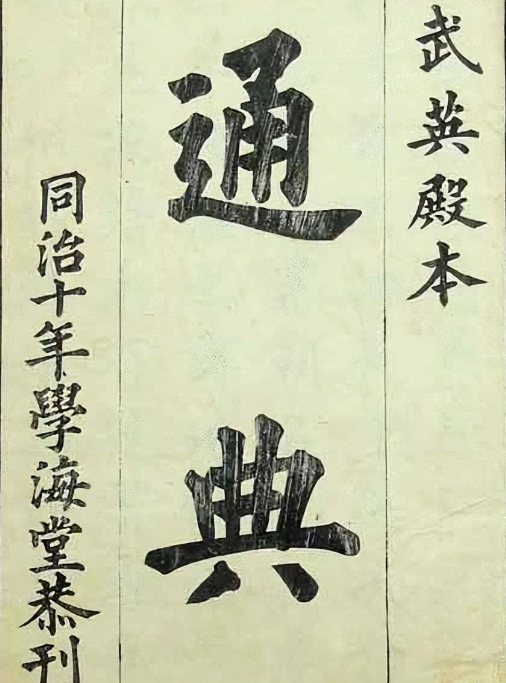 武英殿本
通典
同治十年學海堂恭刊